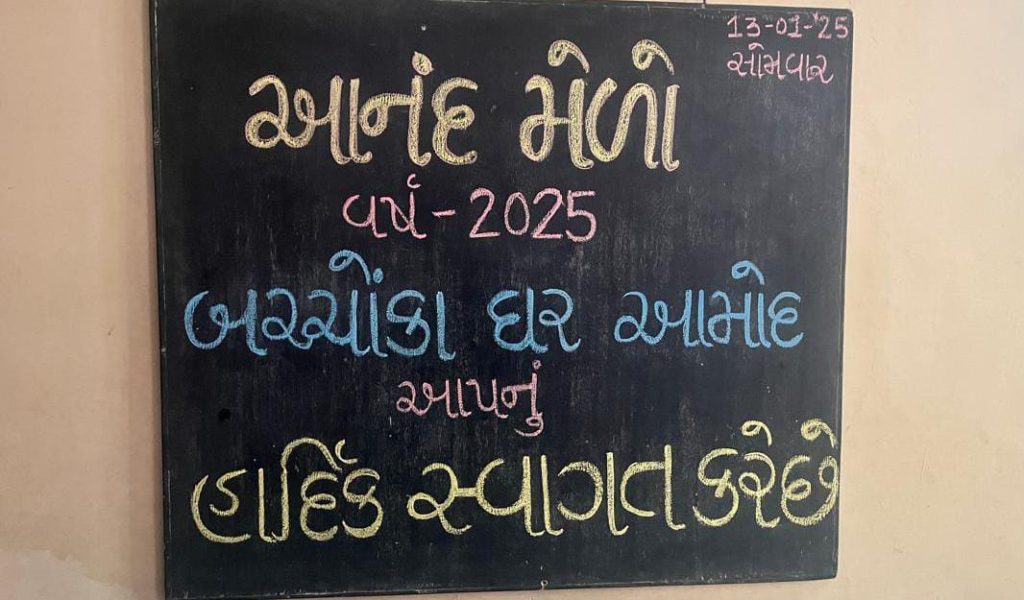 13-01-'25
સોમવાર
આનંદ મેળો
વર્ષ - 2025
બચ્ચોંકા ઘર આમોદ
આપનું
હાર્દિક સ્વાગત કરે છે